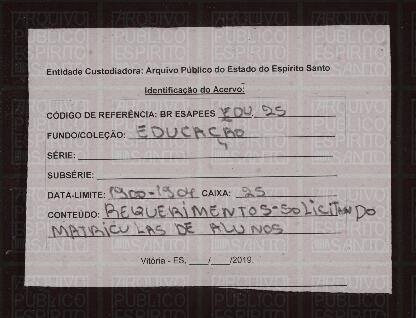 Entidade Custodiadora: Arquivo Público do Estado do Espírito Santo
Identificação do Acervo:
CÓDIGO DE REFERÊNCIA: BR ESAPEES EDU. 25
FUNDO/COLEÇÃO: EDUCAÇÃO
SÉRIE:
SUBSÉRIE:
DATA-LIMITE: 1900-1904 CAIXA: 25
CONTEÚDO: REQUERIMENTOS-SOLICITANDO
MATRICULAS DE ALUNOS
Vitória - ES, ____/____/2019.